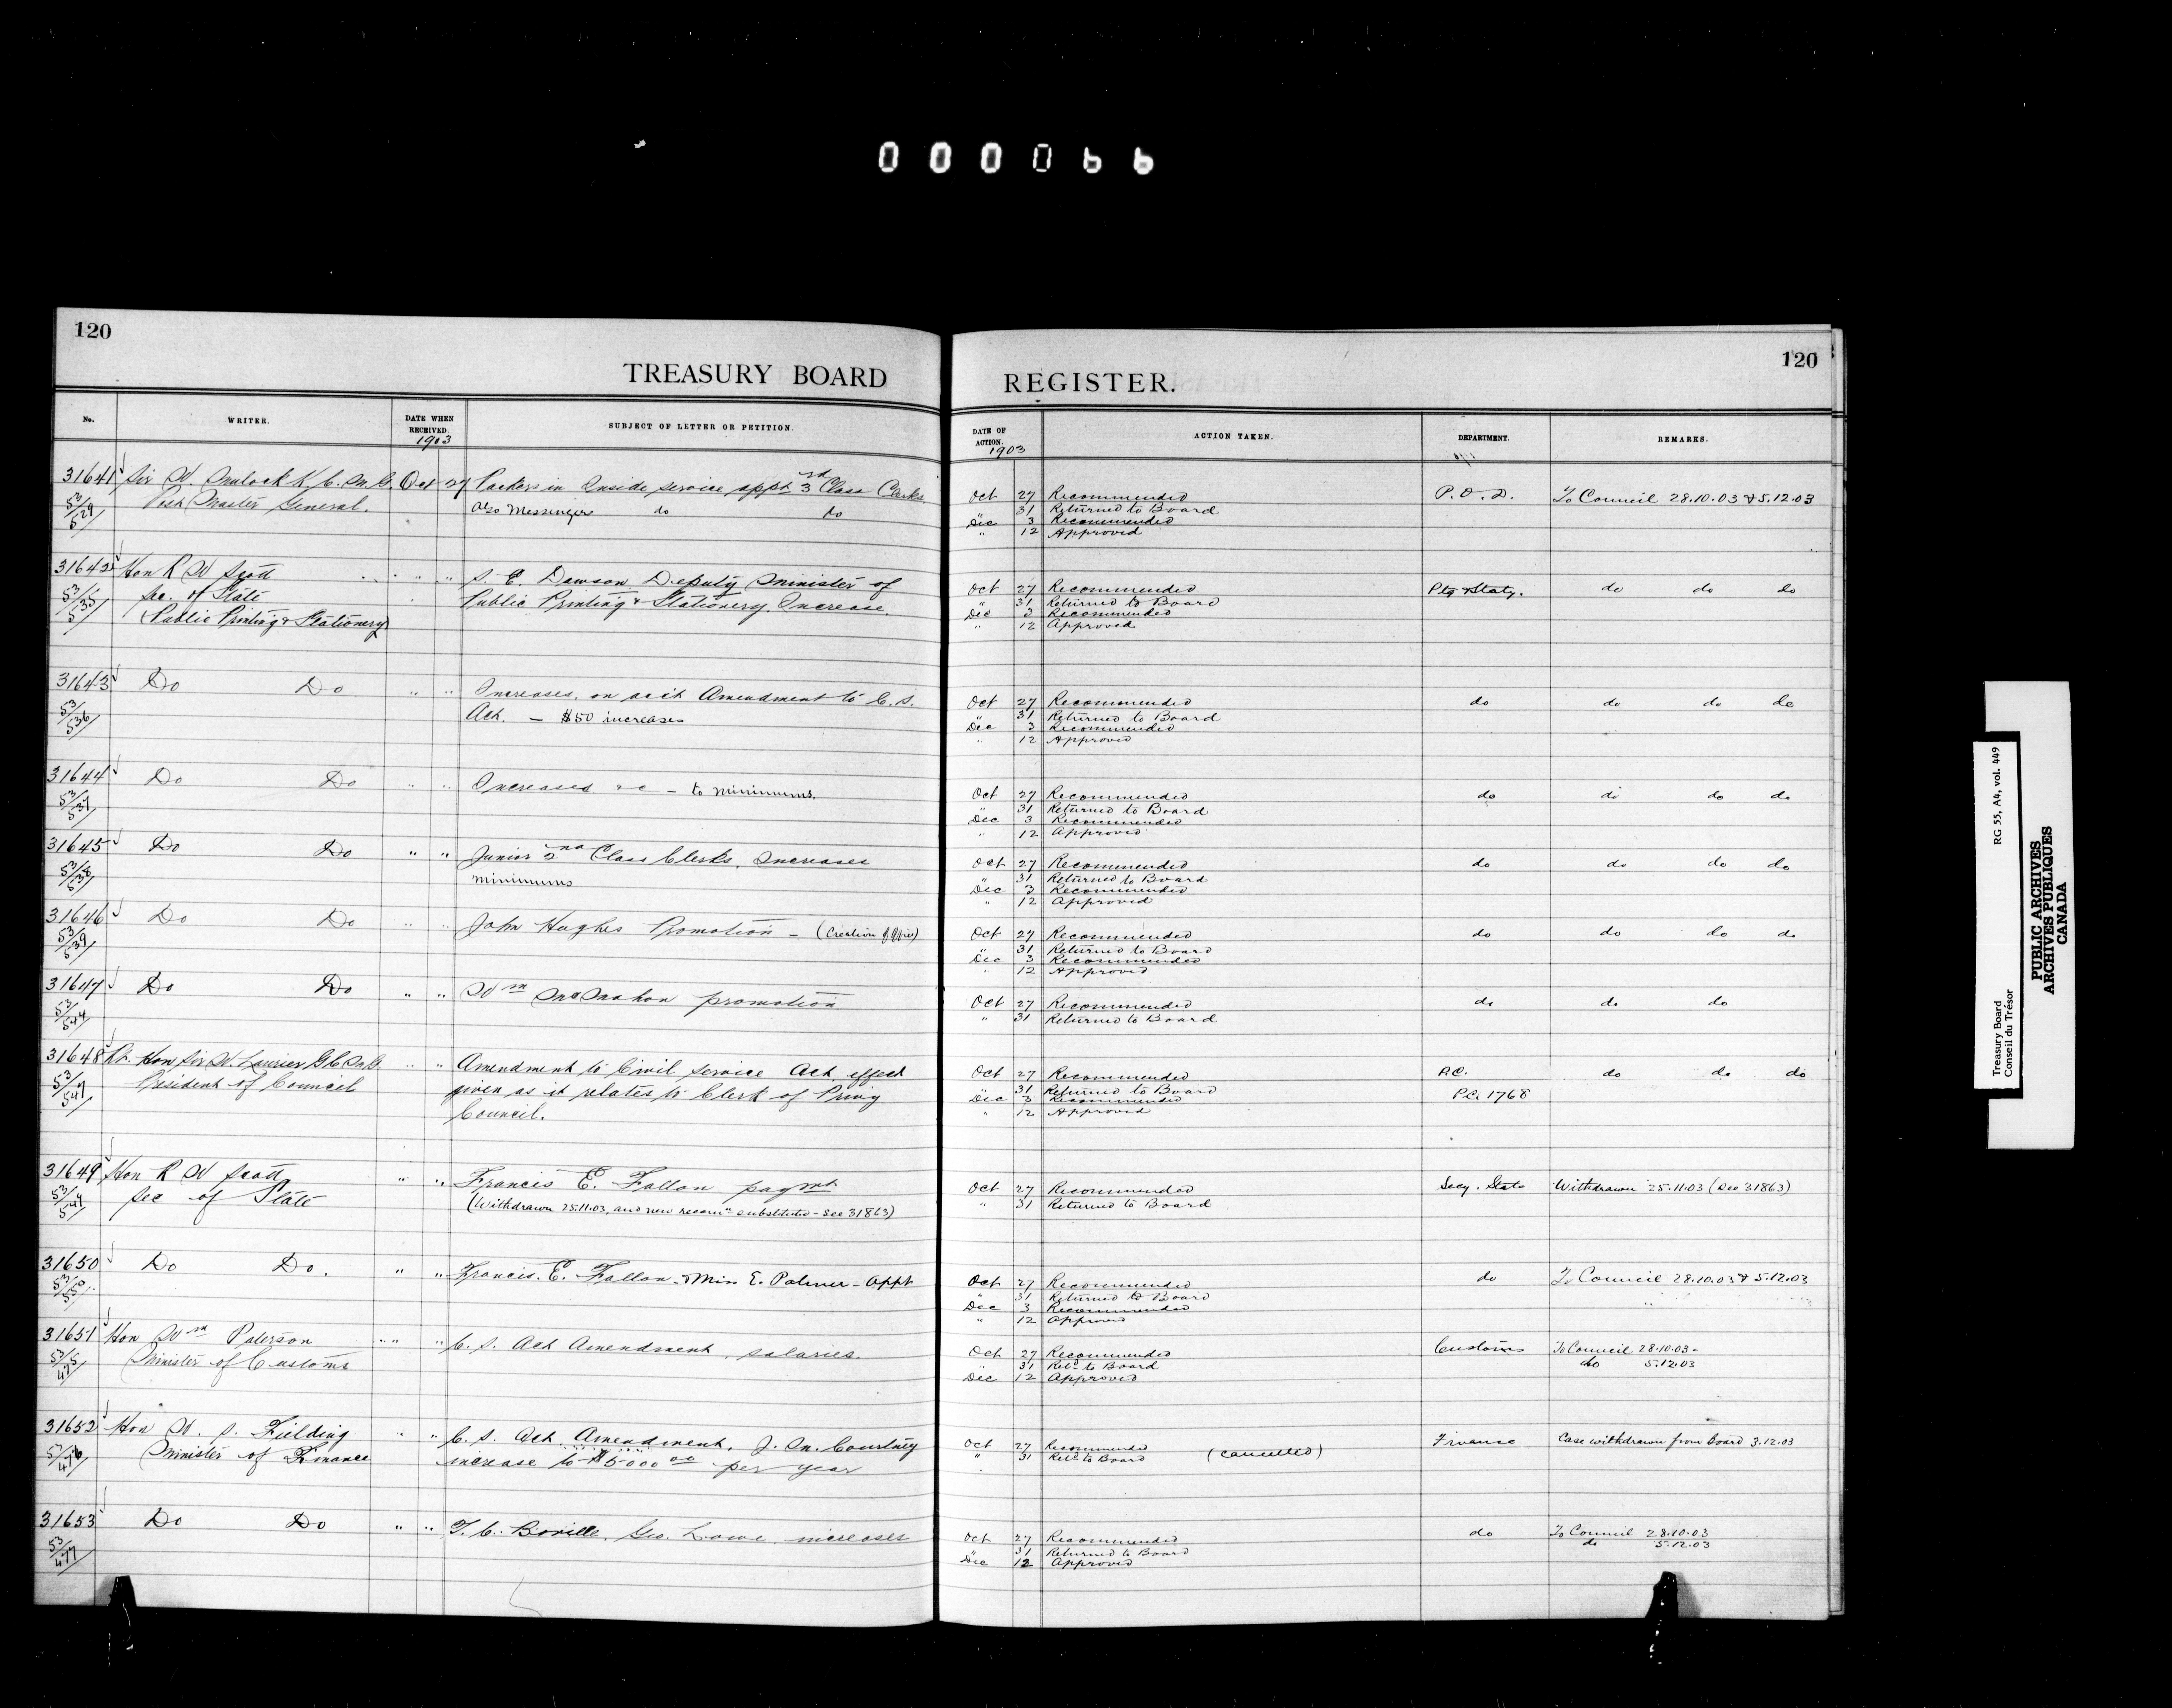 000066
120
TREASURY BOARD
No.
WRITER.
DATE WHEN RECEIVED. 1903
SUBJECT OF LETTER OR PETITION.
31641 Sir W. Mulock K.C.M.G. Oct 27 Packers in Inside service appt 3rd Class Clerks
53/529 Post Master General. Also Messengers do do
31642 Hon R W Scott " " S. E. Dawson Deputy Minister of
53/535 Sec. of State Public Printing & Stationery Increase.
(Public Printing & Stationery)
31643 Do Do " " Increases, on acct Amendment to C.S.
53/536 Act. — $50 increases
31644 Do Do " " Increases &c — to minimums.
53/537
31645 Do Do " " Junior 2nd Class Clerks, Increases
53/538 minimums
31646 Do Do " " John Hughes Promotion — (Creation of Office)
53/539
31647 Do Do " " Wm McMahon promotion
53/544
31648 Rt. Hon Sir W. Laurier G.C.M.G. " " Amendment to Civil Service Act, effect
53/547 President of Council given as it relates to Clerk of Privy
Council.
31649 Hon R W Scott " " Francis E. Fallon paymt
53/549 Sec of State (Withdrawn 25.11.03, and new recomn substituted - see 31863)
31650 Do Do. " " Francis. E. Fallon & Miss E. Palmer - Appt
53/550
31651 Hon Wm Paterson " " C. S. Act Amendment, salaries.
53/475 Minister of Customs
31652 Hon W. S. Fielding " " C. S. Act Amendment, J. M. Courtney
53/476 Minister of Finance increase to $5000 00 per year
31653 Do Do " " T. C. Boville, Geo. Lowe, increases
53/477
REGISTER.
120
DATE OF ACTION. 1903
ACTION TAKEN.
DEPARTMENT.
REMARKS.
Oct 27 Recommended P.O.D. To Council 28.10.03 & 5.12.03
" 31 Returned to Board
Dec 3 Recommended
" 12 Approved
Oct 27 Recommended Ptg & Staty. do do do
" 31 Returned to Board
Dec 3 Recommended
" 12 Approved
Oct 27 Recommended do do do do
" 31 Returned to Board
Dec 3 Recommended
" 12 Approved
Oct 27 Recommended do do do do
" 31 Returned to Board
Dec 3 Recommended
" 12 Approved
Oct 27 Recommended do do do do
" 31 Returned to Board
Dec 3 Recommended
" 12 Approved
Oct 27 Recommended do do do do
" 31 Returned to Board
Dec 3 Recommended
" 12 Approved
Oct 27 Recommended do do do
" 31 Returned to Board
Oct 27 Recommended P.C. do do do
" 31 Returned to Board
Dec 3 Recommended P.C. 1768
" 12 Approved
Oct 27 Recommended Secy. State Withdrawn 25.11.03 (See 31863)
" 31 Returned to Board
Oct 27 Recommended do To Council 28.10.03 & 5.12.03
" 31 Returned to Board
Dec 3 Recommended
" 12 Approved
Oct 27 Recommended Customs To Council 28.10.03 -
" 31 Retd to Board do 5.12.03
Dec 12 Approved
Oct 27 Recommended (cancelled) Finance Case withdrawn from board 3.12.03
" 31 Retd to Board
Oct 27 Recommended do To Council 28.10.03
" 31 Returned to Board do 5.12.03
Dec 12 Approved
Treasury Board
Conseil du Trésor
RG 55, A4, vol. 449
PUBLIC ARCHIVES
ARCHIVES PUBLIQUES
CANADA